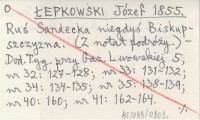 ŁEPKOWSKI Józef 1855.
Ruś Sandecka niegdyś Biskup-
szczyzna. (Z notat podróży.) -
Dod. Tyg. przy Gaz. Lwowskiej 5,
nr 32: 127-128; nr 33: 131-132;
nr 34: 134-135; nr 35: 138-139;
nr 40: 160; nr 41: 162-164.